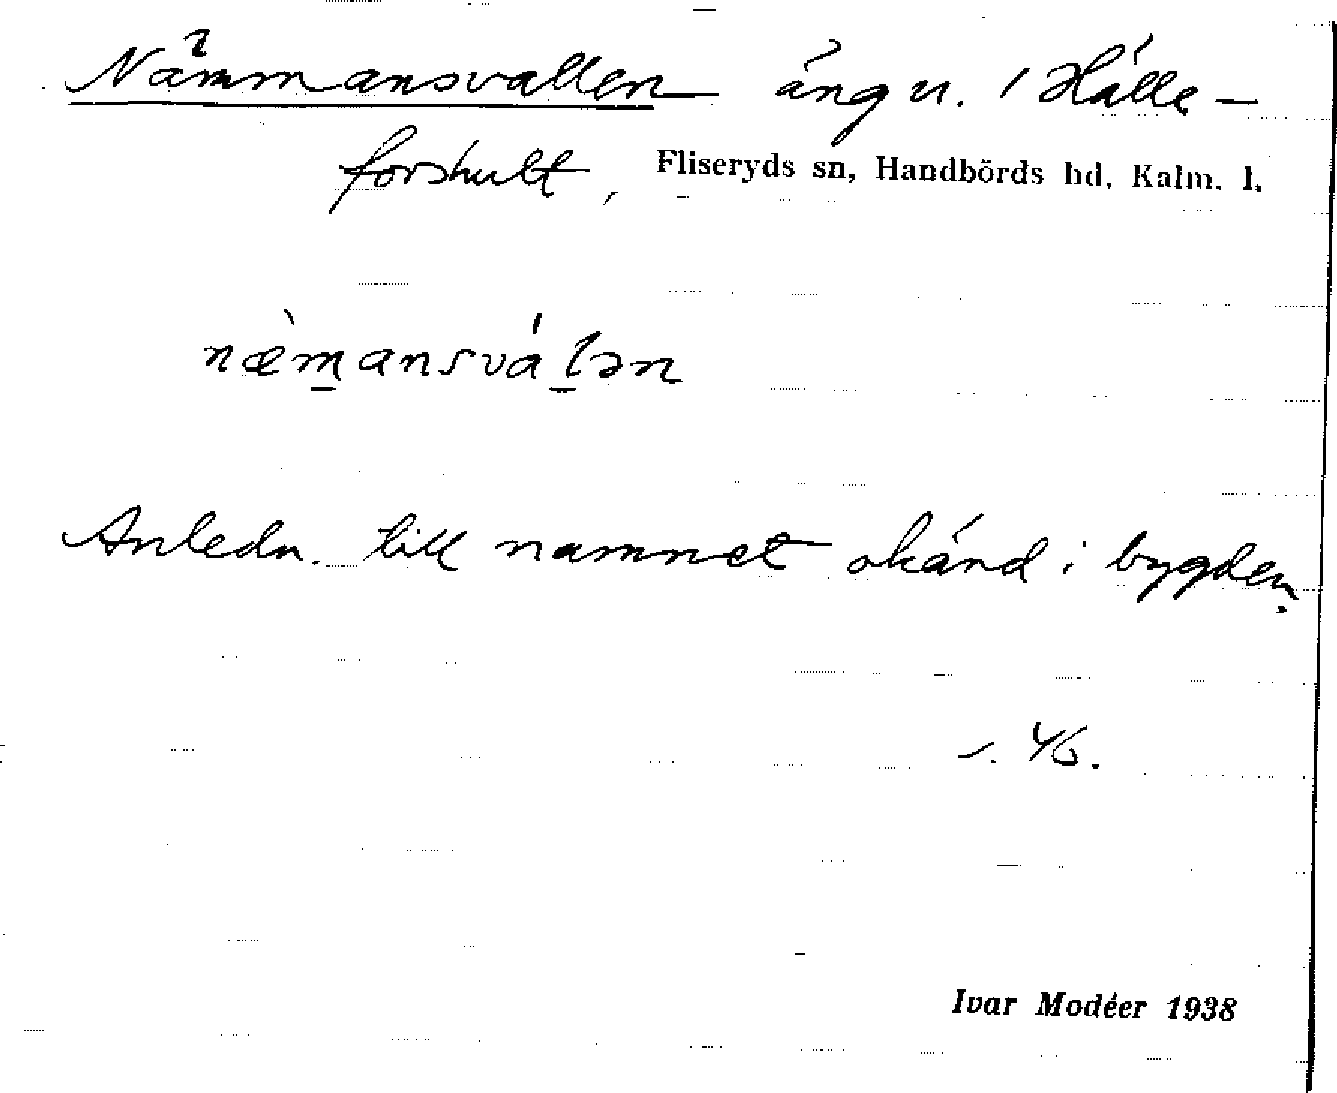 Nämmansvallen äng u. / Hälle-
forshult, Fliseryds sn, Handbörds hd, Kalm. l.
næ̀m̲ansvál̲ən
Anledn. till namnet okänd i bygden.
s. 46.
Ivar Modéer 1938